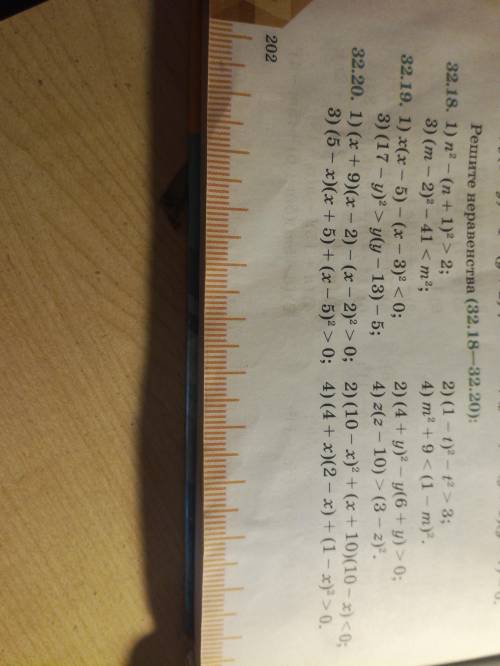 Решите неравенства (32.18—32.20):
32.18. 1) n² − (n + 1)² > 2; 2) (1 − t)² − t² > 3;
3) (m − 2)² − 41 < m²; 4) m² + 9 < (1 − m)².
32.19. 1) x(x − 5) − (x − 3)² < 0; 2) (4 + y)² − y(6 + y) > 0;
3) (17 − y)² > y(y − 13) − 5; 4) z(z − 10) > (3 − z)².
32.20. 1) (x + 9)(x − 2) − (x − 2)² > 0; 2) (10 − x)² + (x + 10)(10 − x) < 0;
3) (5 − x)(x + 5) + (x − 5)² > 0; 4) (4 + x)(2 − x) + (1 − x)² > 0.
202